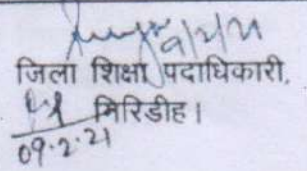 9/2/21
जिला शिक्षा पदाधिकारी,
गिरिडीह।
09.2.21